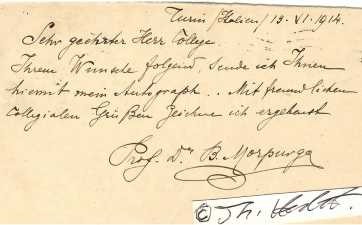 Turin (Italien) 13. VI. 1914.
Sehr geehrter Herr College.
Ihrem Wunsche folgend, sende ich Ihnen
hiermit mein Autograph.. Mit freundlichen
collegialen Grüßen zeichne ich ergebenst
Prof. Dr B. Morpurgo
© Th.